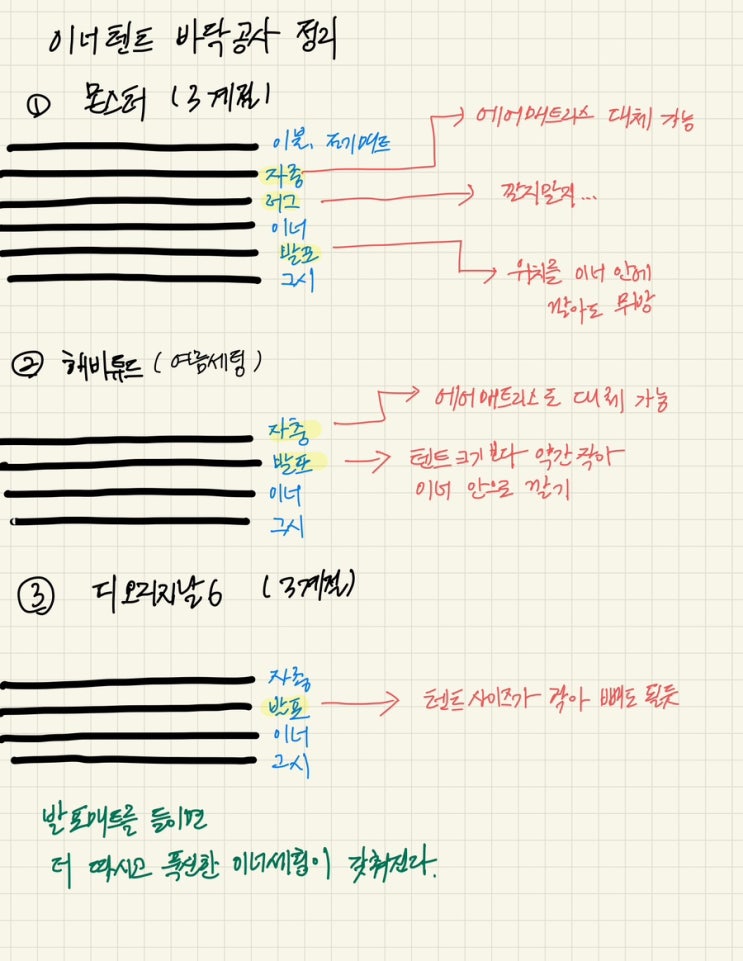 이너텐트 바닥공사 정리
① 몬스터 (3계절)
이불, 전기매트
자충 → 에어매트리스 대체 가능
러그 → 깔지말지...
이너
발포 → 위치를 이너 안에
깔아도 무방
그시
② 해비튜드 (여름세팅)
자충 → 에어매트리스로 대체 가능
발포 → 텐트크기보다 약간작아
이너 안으로 깔기
이너
그시
③ 디 오리지날6 (3계절)
자충
발포 → 텐트사이즈가 작아 빼도 될듯
이너
그시
발포매트를 들이면
더 따시고 푹신한 이너세팅이 갖춰진다.